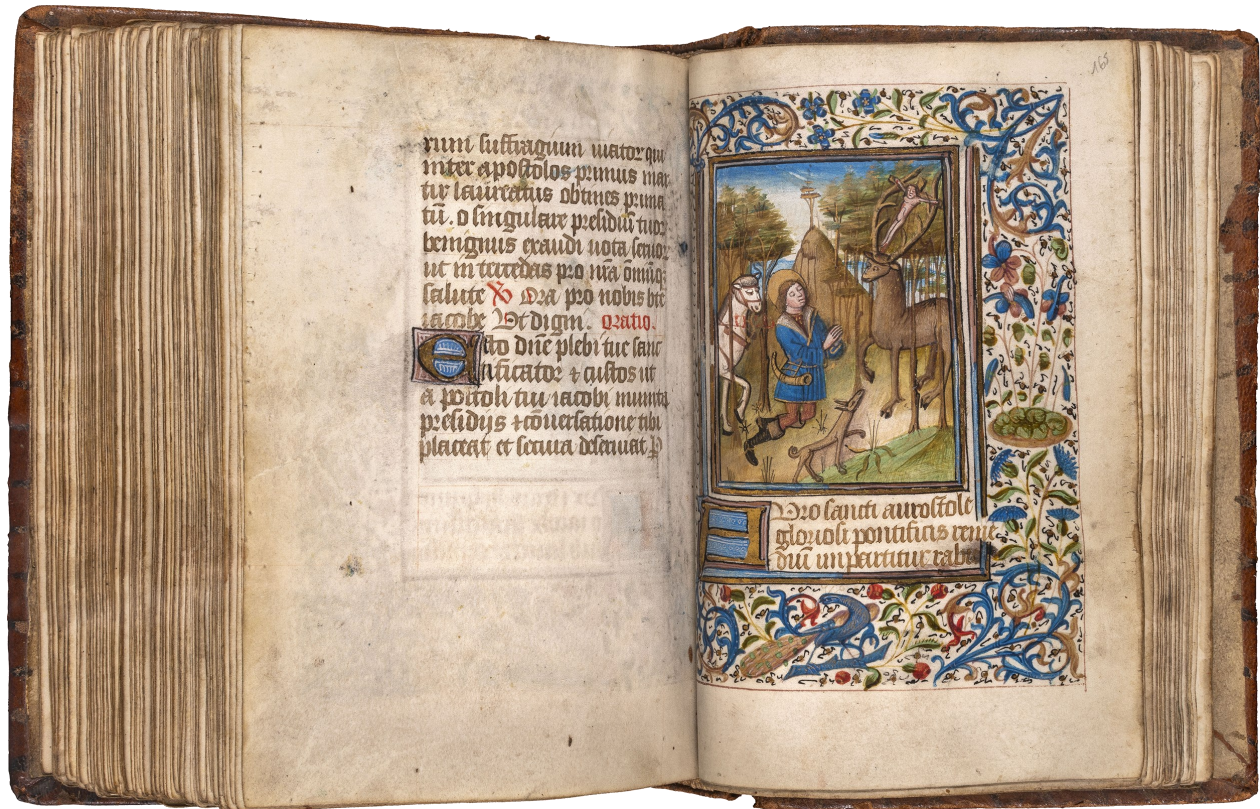 rum suffragium viator qui
inter apostolos primus mar
tir laureatus obtines prima
tū. o singulare presidiū tuor
benignus exaudi vota seruor
ut in tercedas pro nr̄a omniū
salute ℣ Ora pro nobis bte
iacobe Vt digin. oratio.
Esto dn̄e plebi tue sanc
tificator ⁊ custos ut
a postoli tui iacobi munita
presidijs ⁊ cōuersatione tibi
placeat et secura deseruiat P
165
Hvro sancti aurostole
gloriosi pontificis reme
diū impartitur rabi